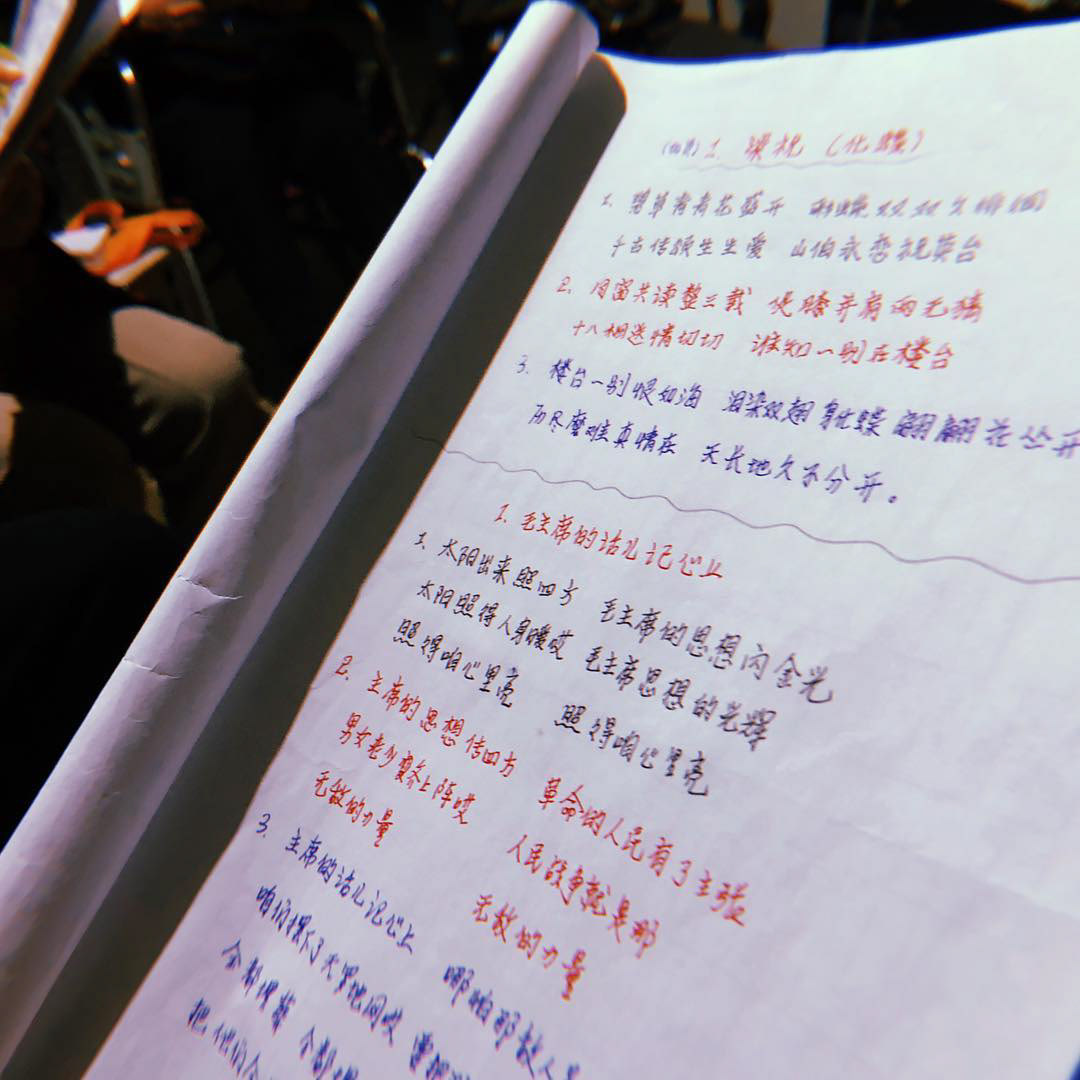 1. 梁祝（化蝶）
1. 碧草青青花盛开 彩蝶双双久徘徊
千古传颂生生爱 山伯永恋祝英台
2. 同窗共读整三载 促膝并肩两无猜
十八相送情切切 谁知一别在楼台
3. 楼台一别恨如海 泪染双翅身化蝶 翩翩花丛
历尽磨难真情在 天长地久不分开。
1. 毛主席的话儿记心上
1. 太阳出来照四方 毛主席的思想闪金光
太阳照得人身暖哎 毛主席思想的光辉
照得咱心里亮 照得咱心里亮
2. 主席的思想传四方 革命的人民有了主张
男女老少齐上阵哎 人民战争就是那
无敌的力量 无敌的力量
3. 主席的话儿记心上 哪怕那敌人
咱们摆下了天罗地网哎
全都埋葬 全都埋
把他们全